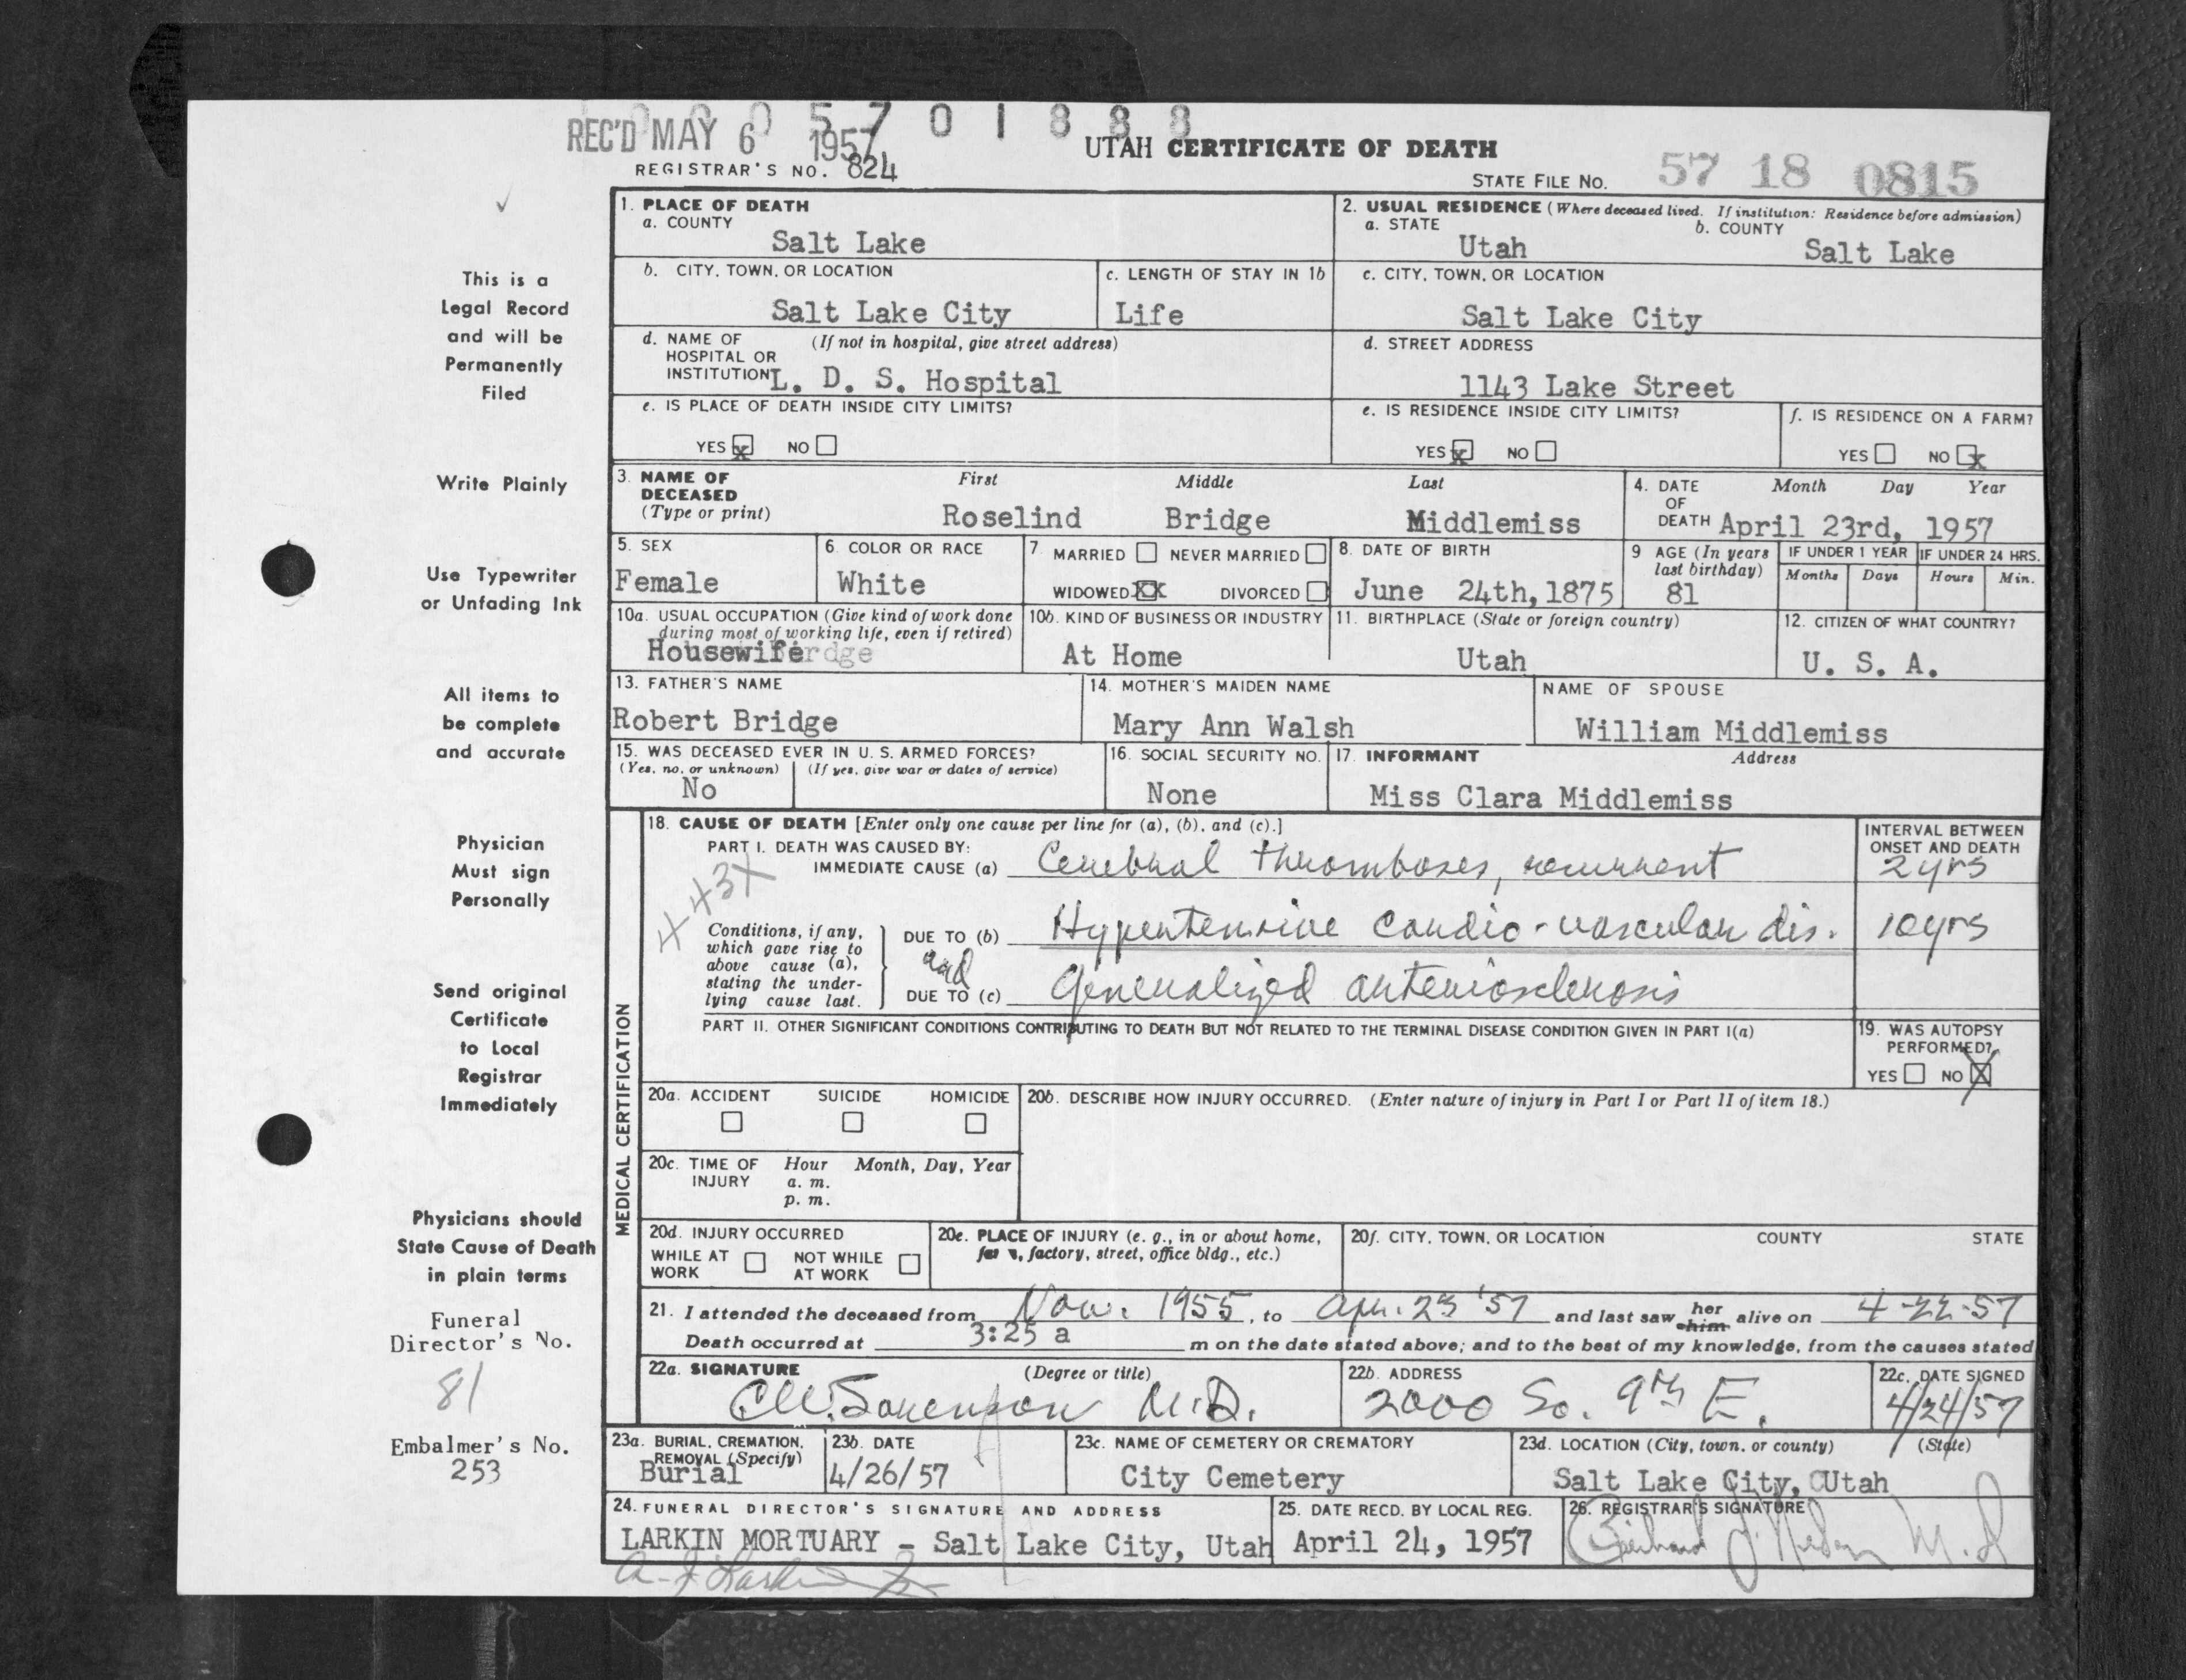 0005701888
REC'D MAY 6 1957
UTAH CERTIFICATE OF DEATH
REGISTRAR'S NO. 824
STATE FILE NO. 57 18 0815
This is a
Legal Record
and will be
Permanently
Filed
Write Plainly
Use Typewriter
or Unfading Ink
All items to
be complete
and accurate
Physician
Must sign
Personally
Send original
Certificate
to Local
Registrar
Immediately
Physicians should
State Cause of Death
in plain terms
Funeral
Director's No.
81
Embalmer's No.
253
1. PLACE OF DEATH
a. COUNTY
Salt Lake
2. USUAL RESIDENCE (Where deceased lived. If institution: Residence before admission)
a. STATE b. COUNTY
Utah Salt Lake
b. CITY, TOWN, OR LOCATION
Salt Lake City
c. LENGTH OF STAY IN 1b
Life
c. CITY, TOWN, OR LOCATION
Salt Lake City
d. NAME OF (If not in hospital, give street address)
HOSPITAL OR
INSTITUTION L. D. S. Hospital
d. STREET ADDRESS
1143 Lake Street
e. IS PLACE OF DEATH INSIDE CITY LIMITS?
YES x NO
e. IS RESIDENCE INSIDE CITY LIMITS?
YES x NO
f. IS RESIDENCE ON A FARM?
YES NO x
3. NAME OF First Middle Last
DECEASED
(Type or print) Roselind Bridge Middlemiss
4. DATE Month Day Year
OF
DEATH April 23rd, 1957
5. SEX
Female
6. COLOR OR RACE
White
7. MARRIED NEVER MARRIED
WIDOWED XX DIVORCED
8. DATE OF BIRTH
June 24th, 1875
9 AGE (In years
last birthday)
81
IF UNDER 1 YEAR IF UNDER 24 HRS.
Months Days Hours Min.
10a. USUAL OCCUPATION (Give kind of work done
during most of working life, even if retired)
Housewife
10b. KIND OF BUSINESS OR INDUSTRY
At Home
11. BIRTHPLACE (State or foreign country)
Utah
12. CITIZEN OF WHAT COUNTRY?
U. S. A.
13. FATHER'S NAME
Robert Bridge
14. MOTHER'S MAIDEN NAME
Mary Ann Walsh
NAME OF SPOUSE
William Middlemiss
15. WAS DECEASED EVER IN U. S. ARMED FORCES?
(Yes, no, or unknown) (If yes, give war or dates of service)
No
16. SOCIAL SECURITY NO.
None
17. INFORMANT Address
Miss Clara Middlemiss
MEDICAL CERTIFICATION
18. CAUSE OF DEATH [Enter only one cause per line for (a), (b), and (c).]
INTERVAL BETWEEN
ONSET AND DEATH
PART I. DEATH WAS CAUSED BY:
IMMEDIATE CAUSE (a) Cerebral thromboses, recurrent 2 yrs
443X
Conditions, if any,
which gave rise to
above cause (a),
stating the under-
lying cause last.
DUE TO (b) Hypertensive cardio-vascular dis. 10 yrs
and
DUE TO (c) Generalized arteriosclerosis
PART II. OTHER SIGNIFICANT CONDITIONS CONTRIBUTING TO DEATH BUT NOT RELATED TO THE TERMINAL DISEASE CONDITION GIVEN IN PART I(a)
19. WAS AUTOPSY
PERFORMED?
YES NO X
20a. ACCIDENT SUICIDE HOMICIDE
20b. DESCRIBE HOW INJURY OCCURRED. (Enter nature of injury in Part I or Part II of item 18.)
20c. TIME OF Hour Month, Day, Year
INJURY a. m.
p. m.
20d. INJURY OCCURRED
WHILE AT NOT WHILE
WORK AT WORK
20e. PLACE OF INJURY (e. g., in or about home,
factory, street, office bldg., etc.)
20f. CITY, TOWN, OR LOCATION COUNTY STATE
21. I attended the deceased from Nov. 1955, to Apr. 23 '57 and last saw her him alive on 4-22-57
Death occurred at 3:25 a m on the date stated above; and to the best of my knowledge, from the causes stated
22a. SIGNATURE (Degree or title)
C.W. Sorenson M.D.
22b. ADDRESS
2000 So. 9th E.
22c. DATE SIGNED
4/24/57
23a. BURIAL, CREMATION,
REMOVAL (Specify)
Burial
23b. DATE
4/26/57
23c. NAME OF CEMETERY OR CREMATORY
City Cemetery
23d. LOCATION (City, town, or county) (State)
Salt Lake City, Utah
24. FUNERAL DIRECTOR'S SIGNATURE AND ADDRESS
LARKIN MORTUARY - Salt Lake City, Utah
25. DATE RECD. BY LOCAL REG.
April 24, 1957
26. REGISTRAR'S SIGNATURE
M.D